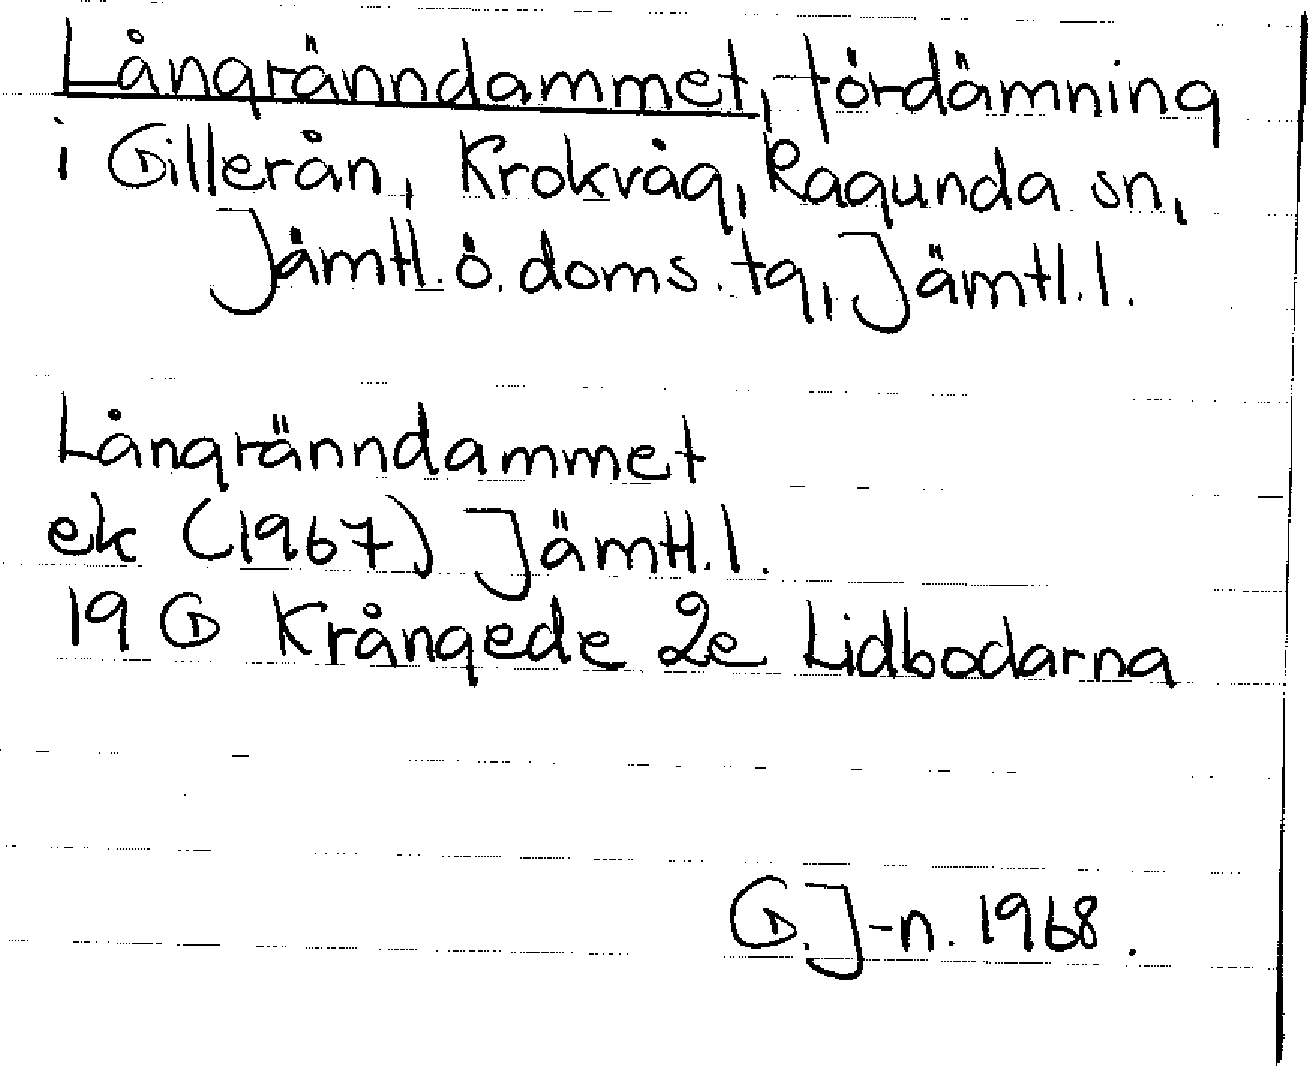 Långränndammet, fördämning
i Gillerån, Krokvåg, Ragunda sn,
Jämtl. ö. doms. tg, Jämtl. l.
Långränndammet
ek (1967) Jämtl. l.
19 G Krångede 2e Lidbodarna
G. J-n. 1968.